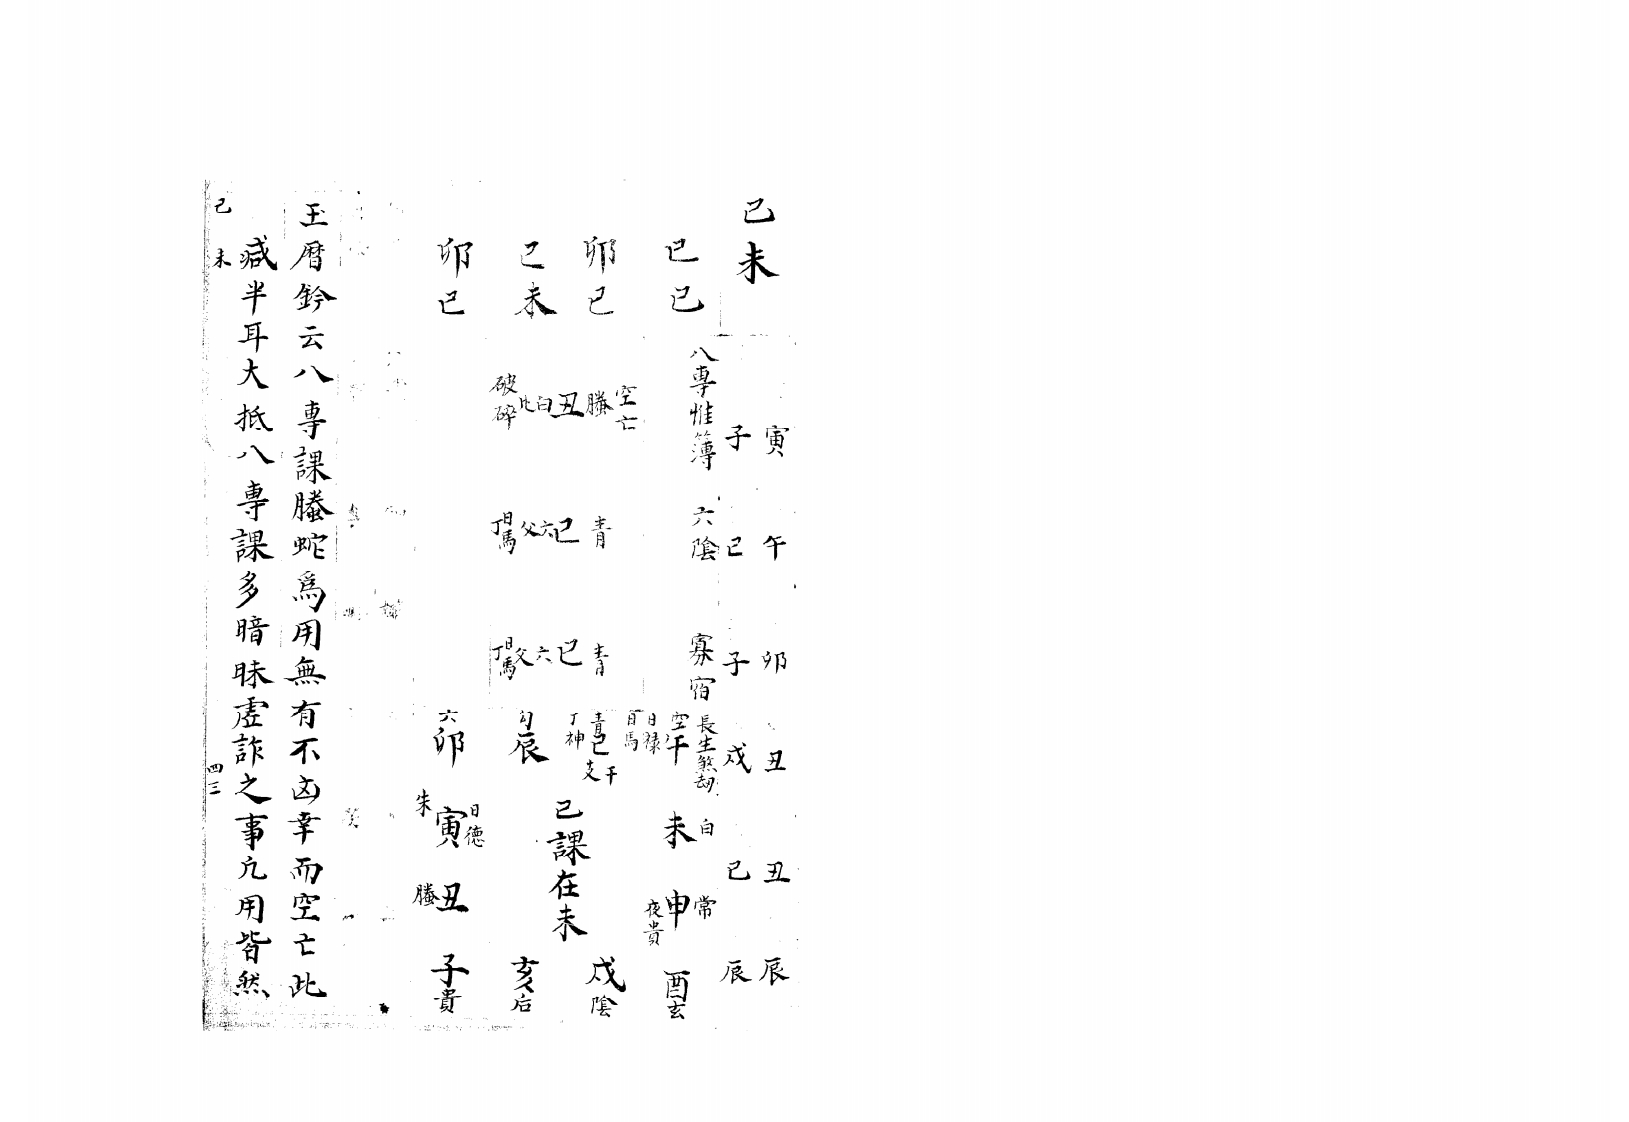 己未
寅　午　卯　丑　丑　辰
子　巳　子　戌　巳　辰
八專惟簿　六陰　寡宿
巳　卯　巳　卯
巳　巳　未　己
空亡　螣　丑　白　比　破碎
青　巳　六　父　日馬　丁
青　巳　六　父　日馬　丁
長生煞劫
空　午　日祿　日馬
青　巳　干　支　丁神
勾　辰
六　卯
白　未
己課在未
日德　寅　朱
常　申　夜貴
丑　螣
酉　玄
戌　陰
亥　后
子　貴
玉曆鈐云八專課螣蛇爲用無有不凶幸而空亡此
減半耳大抵八專課多暗昧虛詐之事凢用皆然
己　未
四三